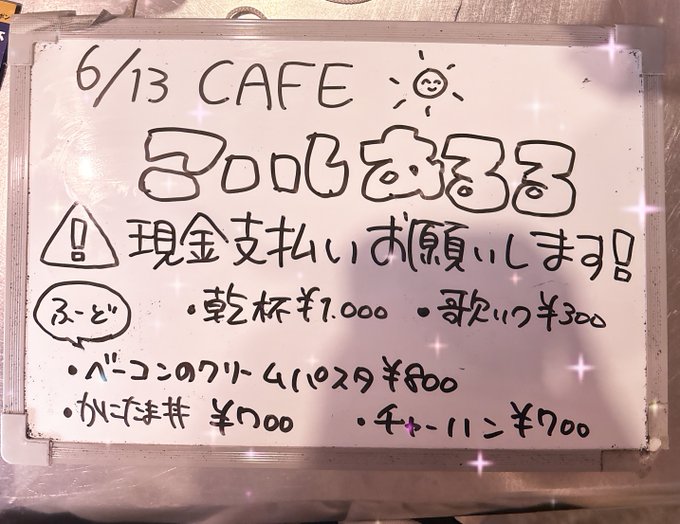 6/13 CAFE
現金支払いお願いします!
ふーど
・乾杯¥1.000 ・歌¥300
・ベーコンのクリームパスタ¥800
・かにたま丼 ¥700 ・チャーハン¥700